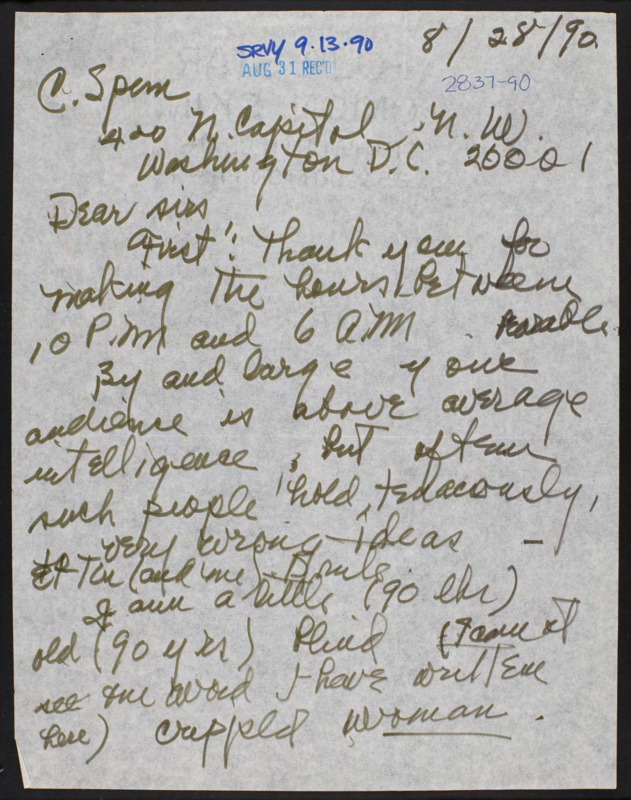 8/28/90
SRVY 9.13.90
AUG 31 REC'D
2837-90
C. Span
400 N. Capitol, N. W.
Washington D.C. 20001
Dear sirs
First! Thank you for
making the hours between
10 P.M and 6 A.M bearable.
By and large your
audience is above average
intelligence, but often
such people hold, tenaciously,
very wrong ideas –
(and me)
I am a little (90 lbs)
old (90 yrs) blind (I cannot
see one word I have written
here) crippled woman.